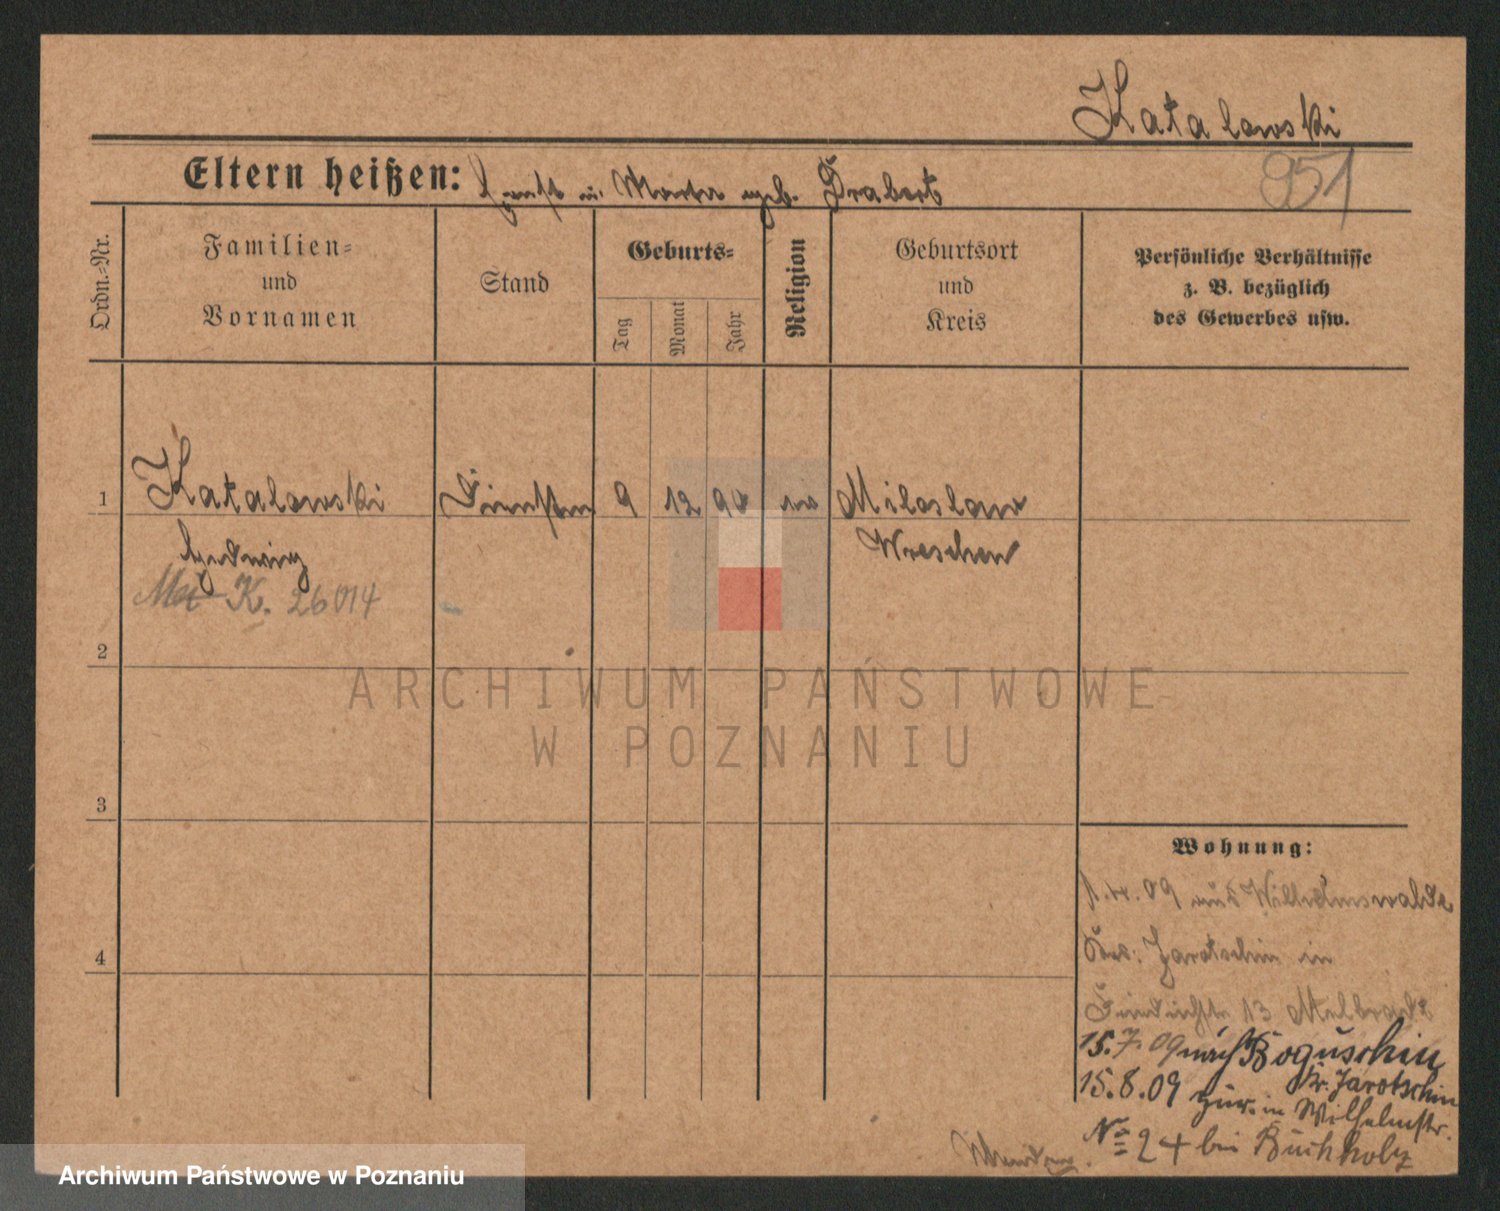 Katalowski
951
Eltern heißen: u. Marta geb. Drabert
Ordn.-Nr.
Familien-
und
Vornamen
Stand
Geburts-
Tag
Monat
Jahr
Religion
Geburtsort
und
Kreis
Persönliche Verhältnisse
z. B. bezüglich
des Gewerbes usw.
1
Katalowski
9 12 90
Miloslaw
Ludwig
Wreschen
K. 26014
2
ARCHIWUM PAŃSTWOWE
W POZNANIU
3
Wohnung:
09 aus Wilhelmswalde
4
Jarotschin in
13
15.7.09 nach Boguschin
Kr. Jarotschin
15.8.09 zur. in Wilhelmstr.
No 24 bei Buchholz
Archiwum Państwowe w Poznaniu